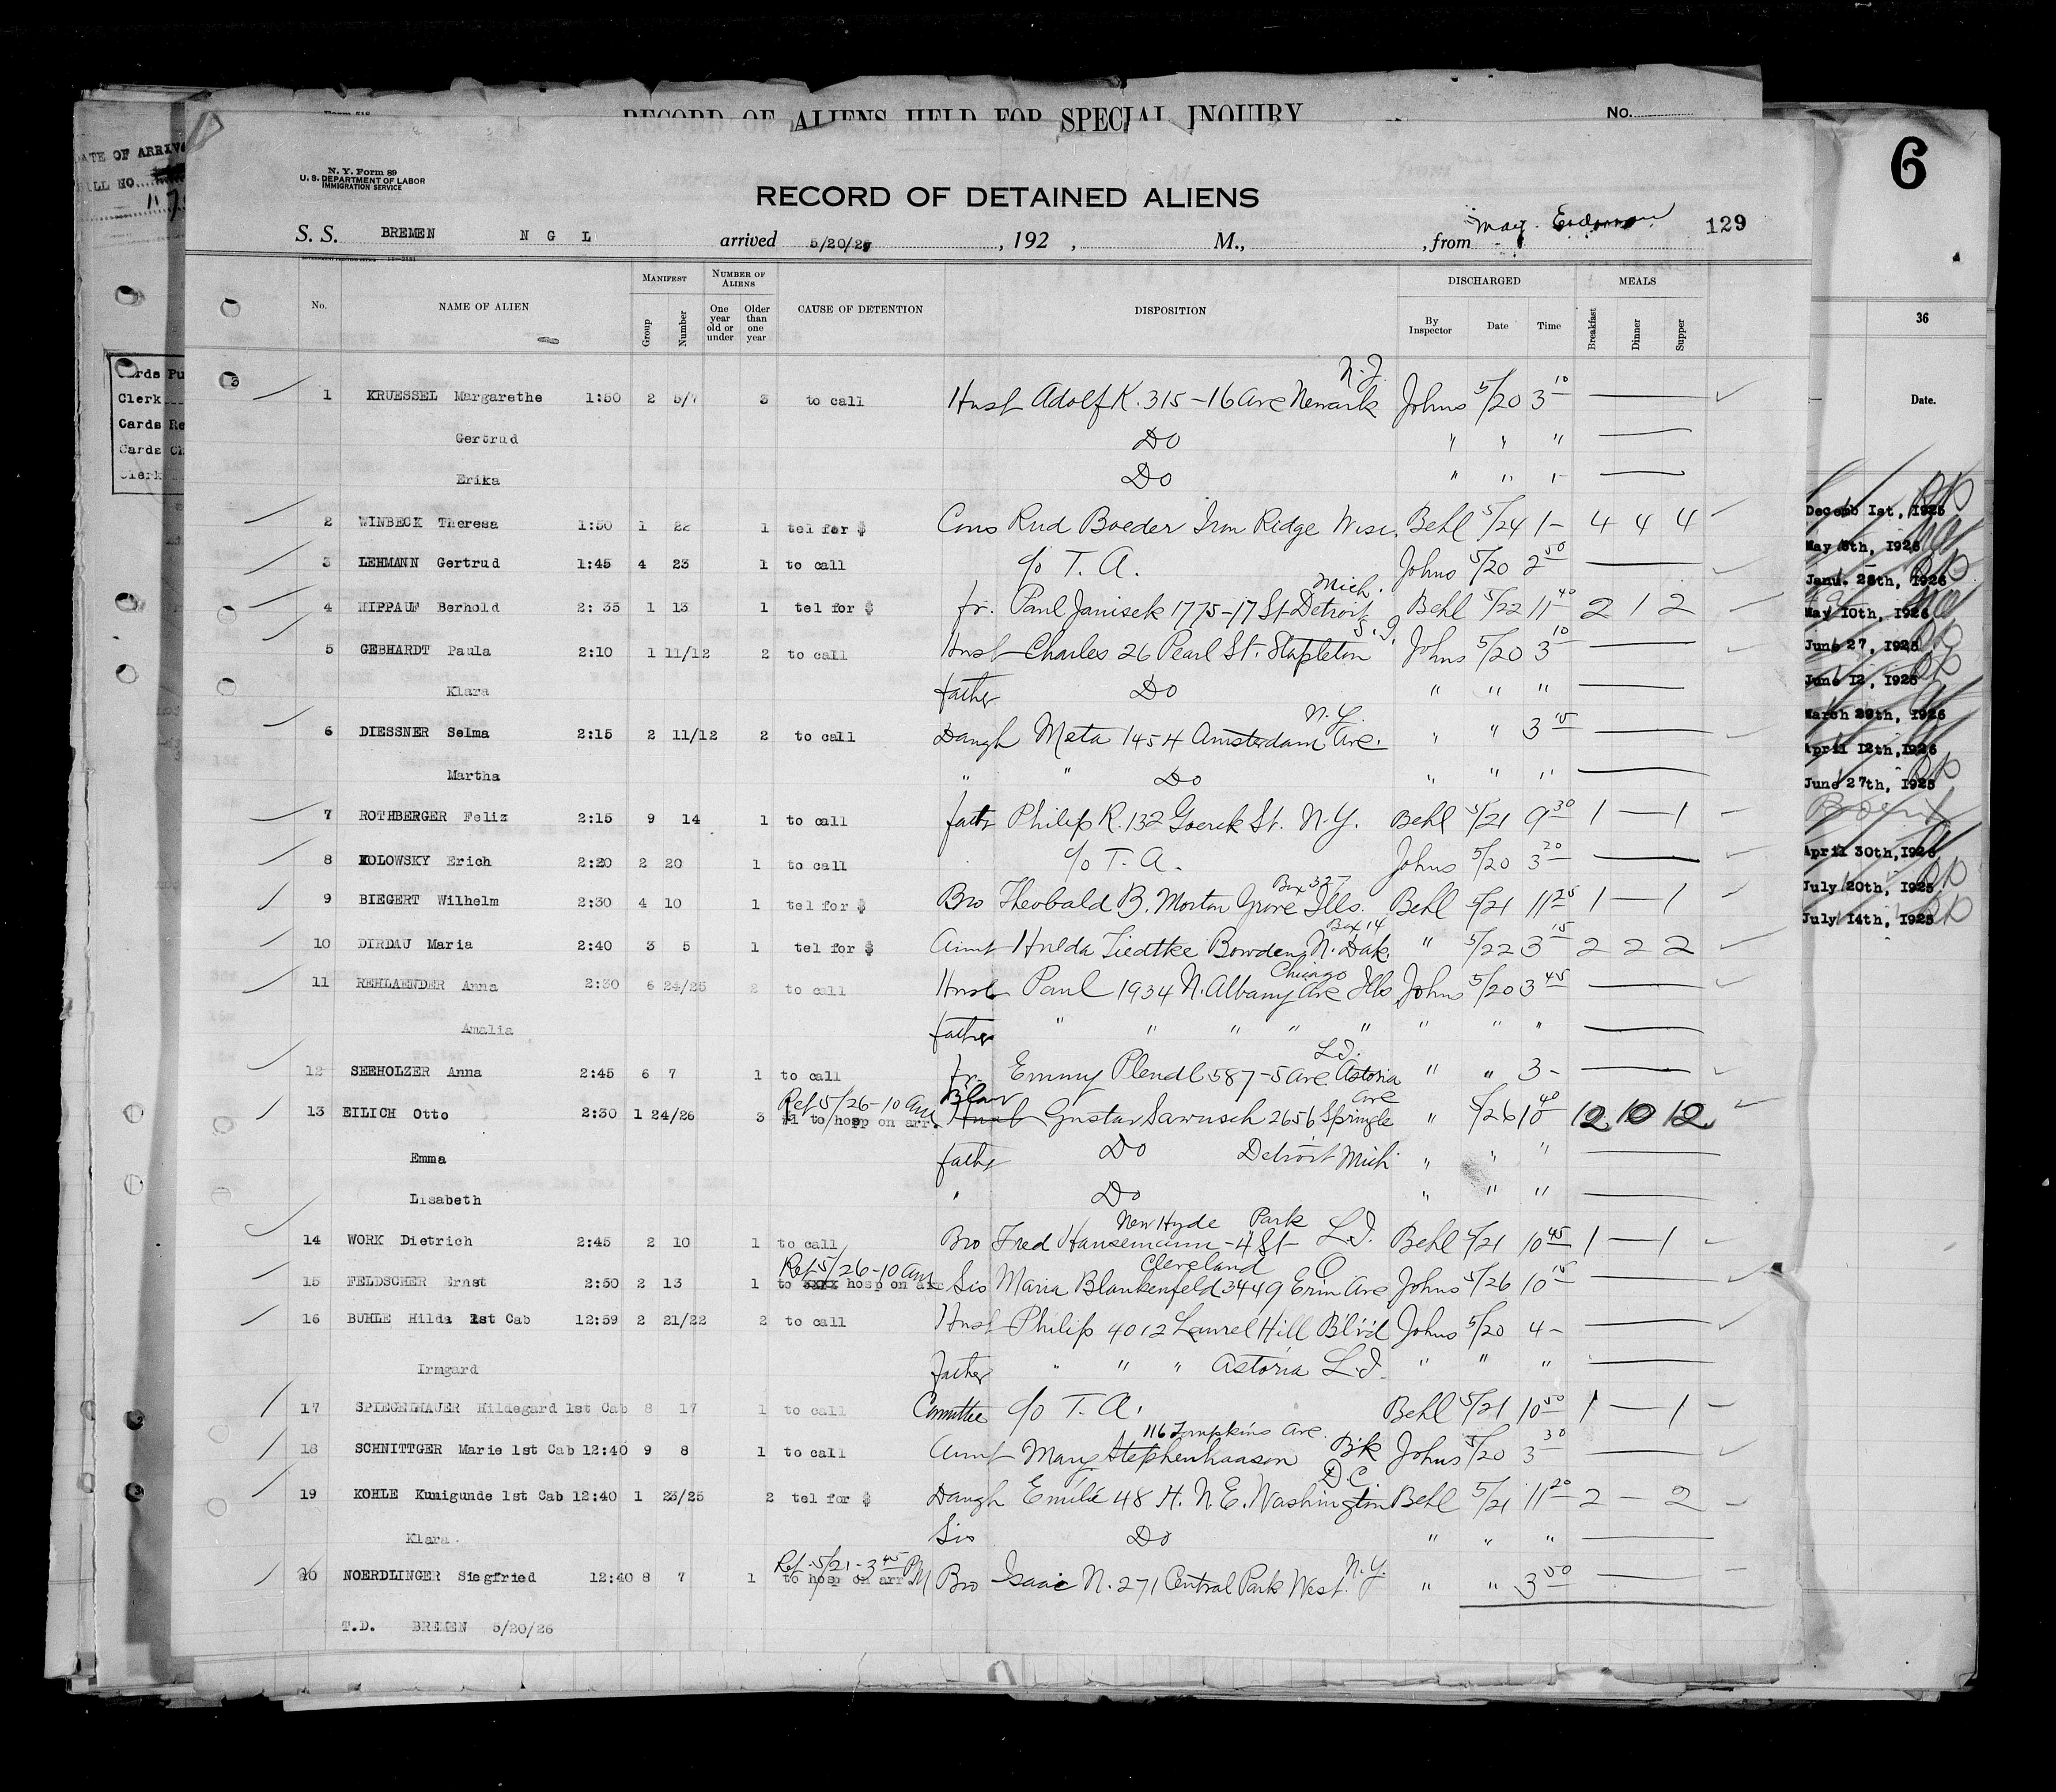 RECORD OF ALIENS HELD FOR SPECIAL INQUIRY No.
DATE OF ARRIV
BILL NO.
6
N. Y. Form 89
U. S. DEPARTMENT OF LABOR
IMMIGRATION SERVICE
RECORD OF DETAINED ALIENS
129
S. S. BREMEN N G L arrived 5/20/26, 192 , M., , from May.
No. NAME OF ALIEN MANIFEST Group Number NUMBER OF ALIENS One year old or under Older than one year CAUSE OF DETENTION DISPOSITION DISCHARGED By Inspector Date Time MEALS Breakfast Dinner Supper
36
Date.
Cards Pu
Clerk
Cards Re
Cards Ch
Clerk
N.J.
1 KRUESSEL Margarethe 1:50 2 5/7 3 to call Husb Adolf K. 315-16 Ave Newark Johns 5/20 3 10 —
Gertrud Do " " " —
Erika Do " " " —
2 WINBECK Theresa 1:50 1 22 1 tel for $ Cons Rud Boeder Iron Ridge Wisc. Behl 5/24 1- 4 4 4
3 LEHMANN Gertrud 1:45 4 23 1 to call c/o T. A. Johns 5/20 2 50 —
Mich.
4 HIPPAUF Berhold 2: 35 1 13 1 tel for $ fr. Paul Janisek 1775-17 St Detroit Behl 5/22 11 40 2 1 2
S. I.
5 GEBHARDT Paula 2:10 1 11/12 2 to call Husb Charles 26 Pearl St. Stapleton Johns 5/20 3 10 —
Klara father Do " " " —
N.Y.
6 DIESSNER Selma 2:15 2 11/12 2 to call Daugh Meta 1454 Amsterdam Ave. " " 3 15 —
Martha " " Do " " " —
7 ROTHBERGER Feliz 2:15 9 14 1 to call fath Philip R. 132 Goerck St. N.Y. Behl 5/21 9 30 1 — 1
8 KOLOWSKY Erich 2:20 2 20 1 to call c/o T. A. Johns 5/20 3 20 —
Box 327
9 BIEGERT Wilhelm 2:30 4 10 1 tel for $ Bro Theobald B. Morton Grove Ills. Behl 5/21 11 25 1 — 1
Box 14
10 DIRDAU Maria 2:40 3 5 1 tel for $ Aunt Hulda Tiedtke Bowden, N. Dak. " 5/22 3 15 2 2 2
Chicago
11 REHLAENDER Anna 2:30 6 24/25 2 to call Husb Paul 1934 N. Albany Ave Ills Johns 5/20 3 45 —
Amalia father " " " " " " " " —
L.I.
12 SEEHOLZER Anna 2:45 6 7 1 to call fr. Emmy Plendl 587-5 Ave Astoria " " 3 - —
Ref 5/26-10 Am Blaw Ave
13 EILICH Otto 2:30 1 24/26 3 #1 to hosp on arr. Husb Gustav Sawusch 2656 Springle " 5/26 10 40 12 10 12
Emma father Do Detroit Mich " " " —
Lisabeth " Do " " " —
New Hyde Park
14 WORK Dietrich 2:45 2 10 1 to call Bro Fred Hansemann -4 St- L.I. Behl 5/21 10 45 1 — 1
Ref 5/26-10 Am Cleveland O
15 FELDSCHER Ernst 2:50 2 13 1 to xxxx hosp on arr Sis Maria Blankenfeld 3449 Erin Ave Johns 5/26 10 15 —
16 BUHLE Hilda 1st Cab 12:59 2 21/22 2 to call Husb Philip 4012 Laurel Hill Blvd Johns 5/20 4 - —
Irmgard father " " " Astoria L.I. " " " —
17 SPIEGELHAUER Hildegard 1st Cab 8 17 1 to call Committee c/o T. A. Behl 5/21 10 50 1 — 1
116 Tompkins Ave.
18 SCHNITTGER Marie 1st Cab 12:40 9 8 1 to call Aunt Mary Stephenhaason B'k Johns 5/20 3 30 —
D.C.
19 KOHLE Kunigunde 1st Cab 12:40 1 23/25 2 tel for $ Daugh Emilie 48 H. N.E. Washington Behl 5/21 11 20 2 — 2
Klara Sis Do " " " —
Ref. 5/21-3 45 PM N.Y.
20 NOERDLINGER Siegfried 12:40 8 7 1 to hosp on arr. Bro Isaac N. 271 Central Park West. " " 3 50 —
T.D. BREMEN 5/20/26
Decemb 1st, 1925
May 8th, 1926
Janu. 26th, 1926
May 10th, 1926
June 27, 1925
June 12, 1925
March 29th, 1926
April 12th, 1926
June 27th, 1925
April 30th, 1926
July 20th, 1925
July 14th, 1925